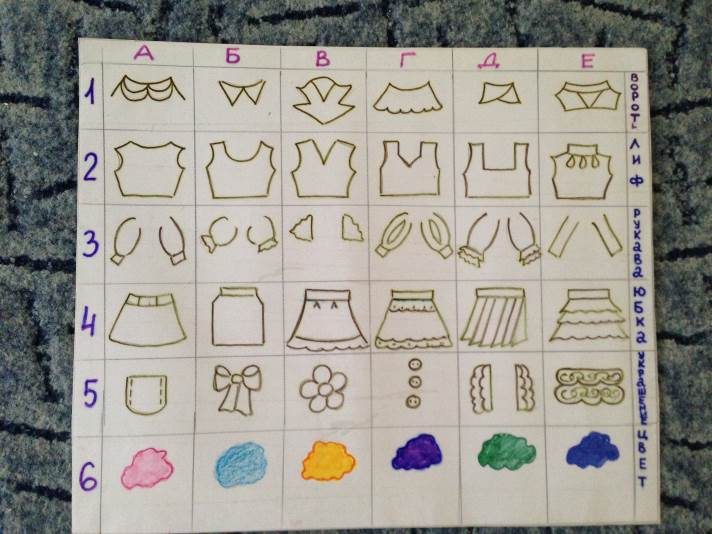 А Б В Г Д Е
1 ВОРОТЬ
2 ЛИФ
3 РУКАВА
4 ЮБКА
5 УКРАШЕНИЕ
6 ЦВЕТ